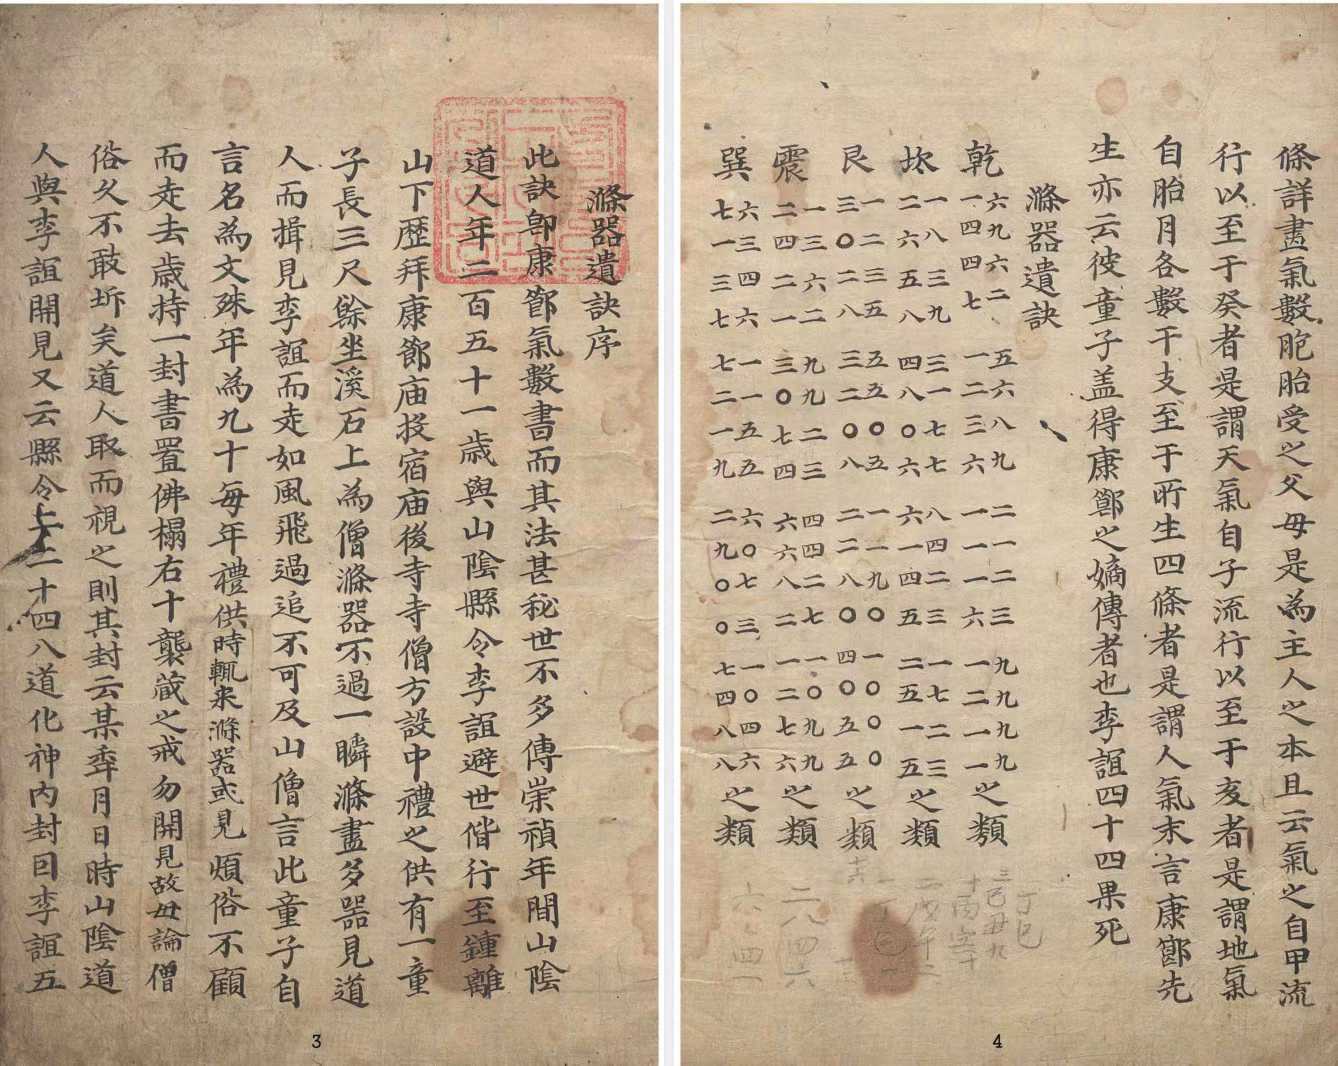 滌器遺訣序
此訣卽康節氣數書而其法甚秘世不多傳崇禎年間山陰
道人年二百五十一歲與山陰縣令李誼避世偕行至鍾離
山下歷拜康節庙投宿庙後寺寺僧方設中禮之供有一童
子長三尺餘坐溪石上為僧滌器不過一瞬滌盡多器見道
人而揖見李誼而走如風飛過追不可及山僧言此童子自
言名為文殊年為九十每年禮供時輒来滌器或見煩俗不顧
而走去歲持一封書置佛榻右十襲藏之戒勿開見故毋論僧
俗久不敢坼矣道人取而視之則其封云某年月日時山陰道
人與李誼開見又云縣令上二十四八道化神內封曰李誼五
3
條詳畫氣數胞胎受之父母是為主人之本且云氣之自甲流
行以至于癸者是謂天氣自子流行以至于亥者是謂地氣
自胎月各數干支至于所生四條者是謂人氣末言康節先
生亦云彼童子盖得康節之嫡傳者也李誼四十四果死
滌器遺訣
乾 六九六二 五六八九 二一二三 九九九九
一四四七 一二三六 一一一六 一二一一 之類
坎 一八三九 三一七七 八四二三 一七二三
二六五八 四八〇六 六一四五 二五一五 之類
艮 一二三五 五五〇五 一一九〇 一〇〇〇
三〇二八 三二〇八 二二八〇 四〇五五 之類
震 一三六二 九九二三 四四二七 一〇九九
二四二一 三〇七四 六六八二 一二七六 之類
巽 六三四六 一一五五 六〇七三 一〇四六
七一三七 七二一九 二九〇〇 七四八八 之類
4